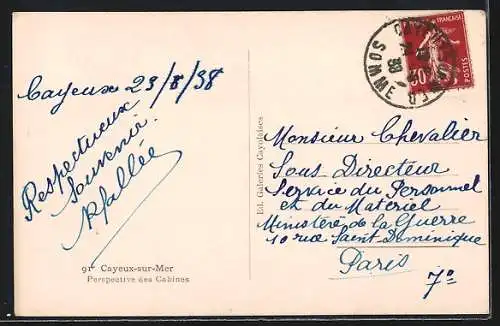 Cayeux 23/8/38
Respectueux
Souvenir.
91 Cayeux-sur-Mer
Perspective des Cabines
Ed. Galeries Cayolaises
FRANÇAISE
POSTES
SOMME
38
Monsieur Chevalier
Sous Directeur
Service du Personnel
et du Matériel
Ministère de la Guerre
10 rue Saint Dominique
Paris
7e